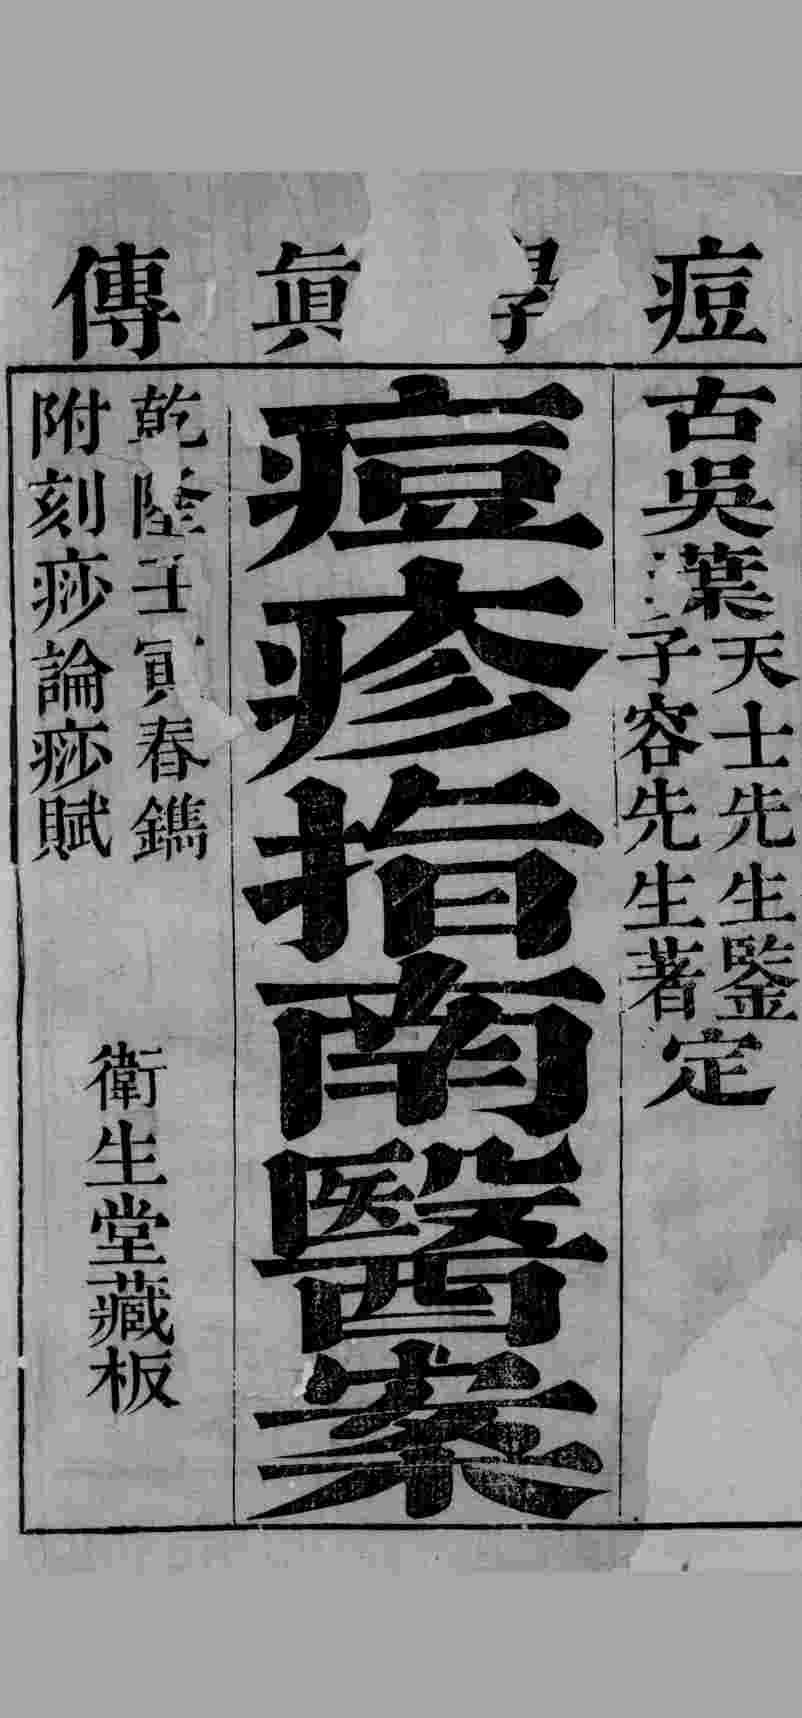 痘學眞傳
古吳葉
天士先生鑒
子容先生著
定
痘疹指南醫案
乾隆壬寅春鐫
附刻痧論痧賦
衛生堂藏板